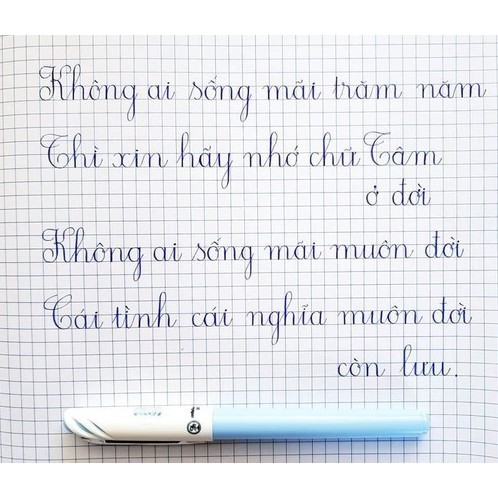 Không ai sống mãi trăm năm
Thì xin hãy nhớ chữ Tâm
ở đời
Không ai sống mãi muôn đời
Cái tình cái nghĩa muôn đời
còn lưu.